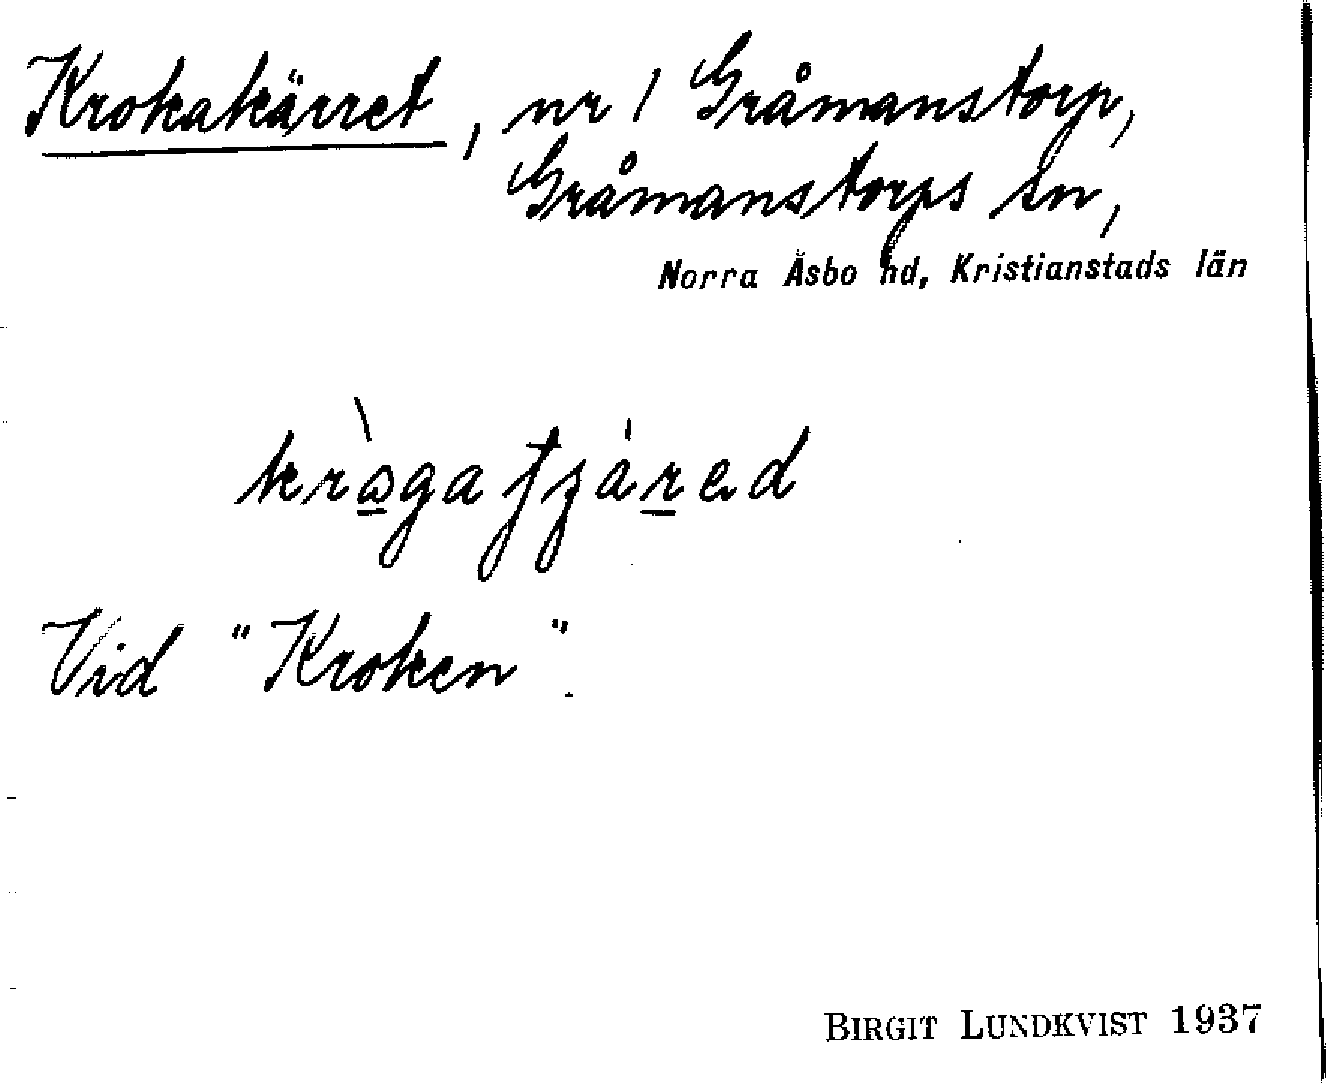 Krokakärret, nr 1 Gråmanstorp,
Gråmanstorps sn,
Norra Åsbo hd, Kristianstads län
Vid "Kroken".
BIRGIT LUNDKVIST 1937